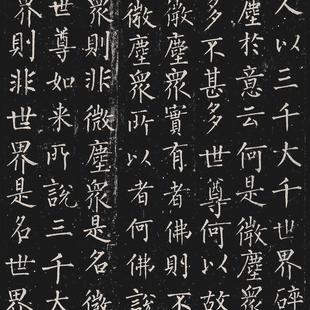 人以三千大千世界碎
塵於意云何是微塵眾
多不甚多世尊何以故
微塵眾實有者佛則不
微塵眾所以者何佛說
眾則非微塵眾是名微
世尊如来所說三千大
界則非世界是名世界